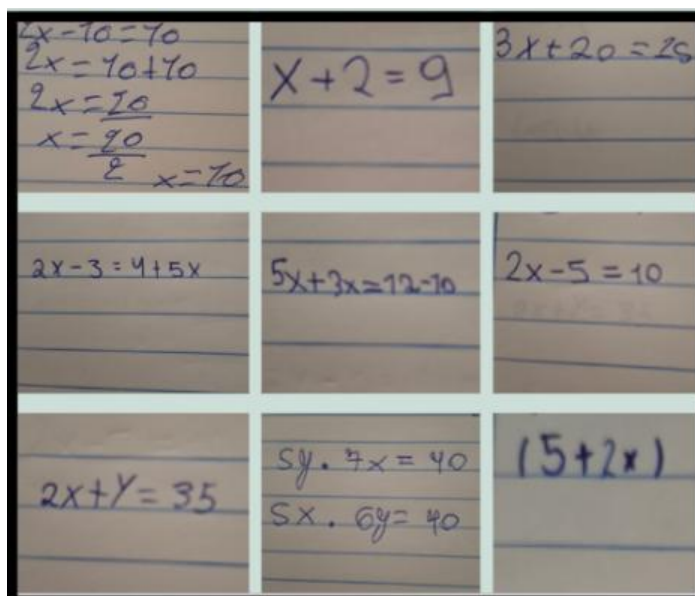 2x-10=10
2x=10+10
2x=20
x=20
2 x=10
x+2=9
3x+20=25
2x-3=4+5x
5x+3x=12-10
2x-5=10
2x+y=35
5y. 7x=40
5x. 6y=40
(5+2x)